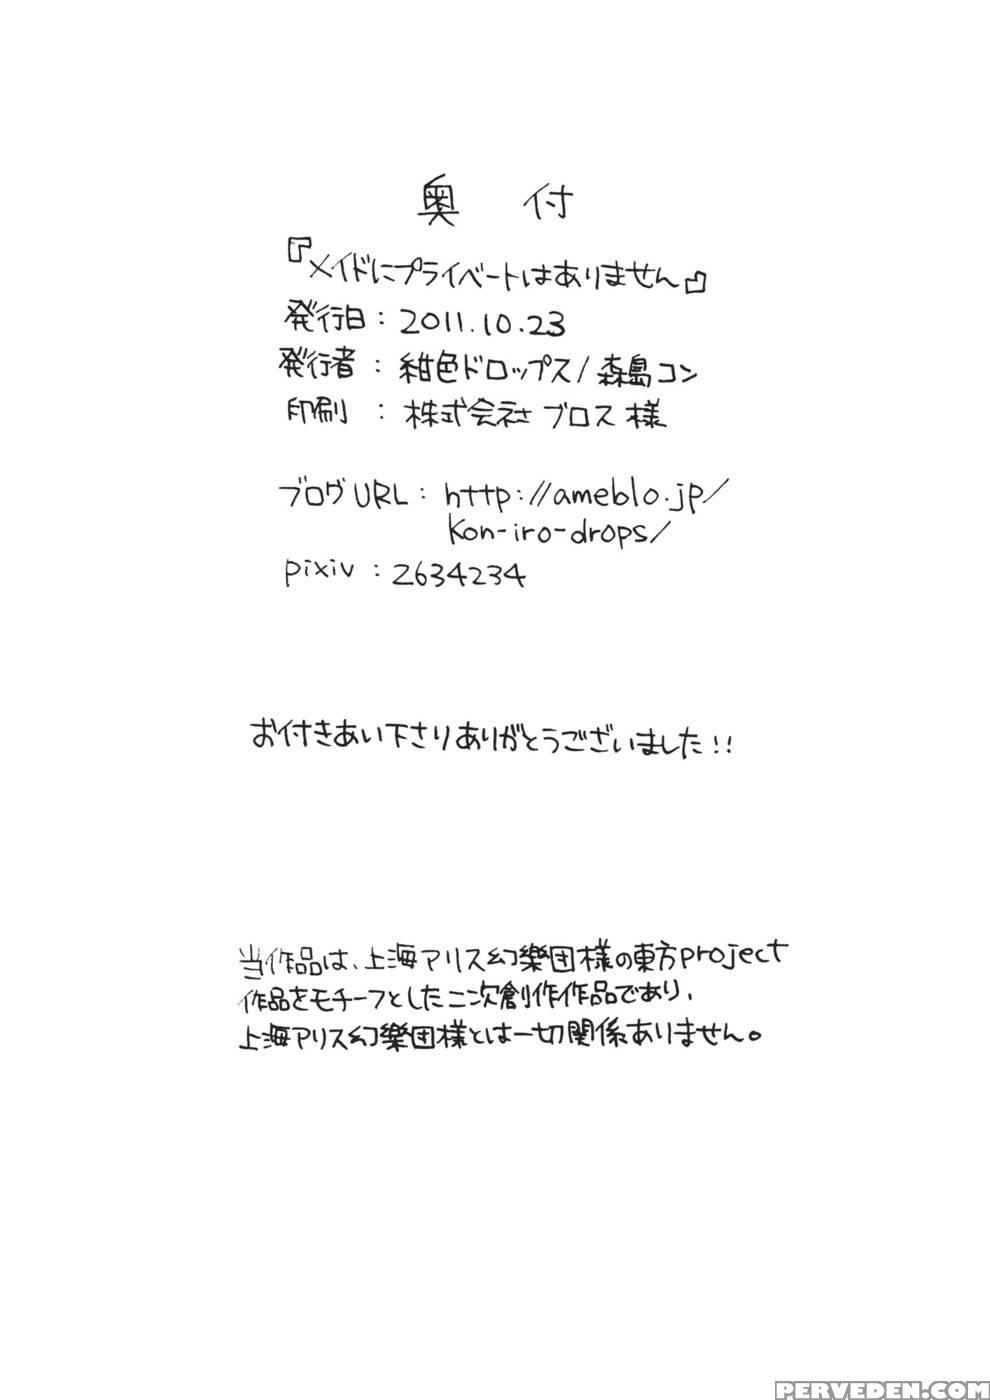 奥付
『メイドにプライベートはありません』
発行日：2011.10.23
発行者：紺色ドロップス/森島コン
印刷：株式会社ブロス様
ブログURL：http://ameblo.jp/
kon-iro-drops/
pixiv：2634234
お付きあい下さりありがとうございました!!
当作品は、上海アリス幻樂団様の東方project
作品をモチーフとした二次創作作品であり、
上海アリス幻樂団様とは一切関係ありません。
PERVEDEN.COM